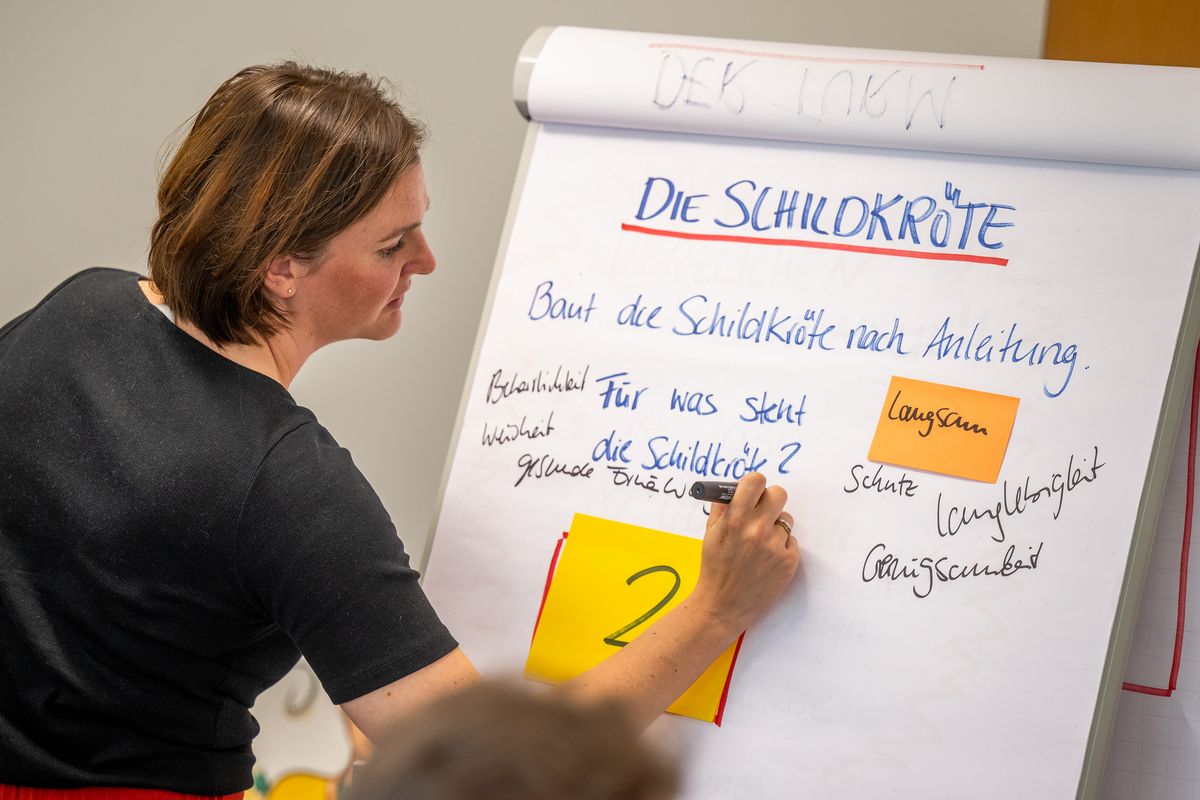 DER TURM
DIE SCHILDKRÖTE
Baut die Schildkröte nach Anleitung.
Beharrlichkeit
Für was steht
Langsam
Weisheit
die Schildkröte?
gesunde Ernährung
Schutz
Langlebigkeit
Genügsamkeit
2